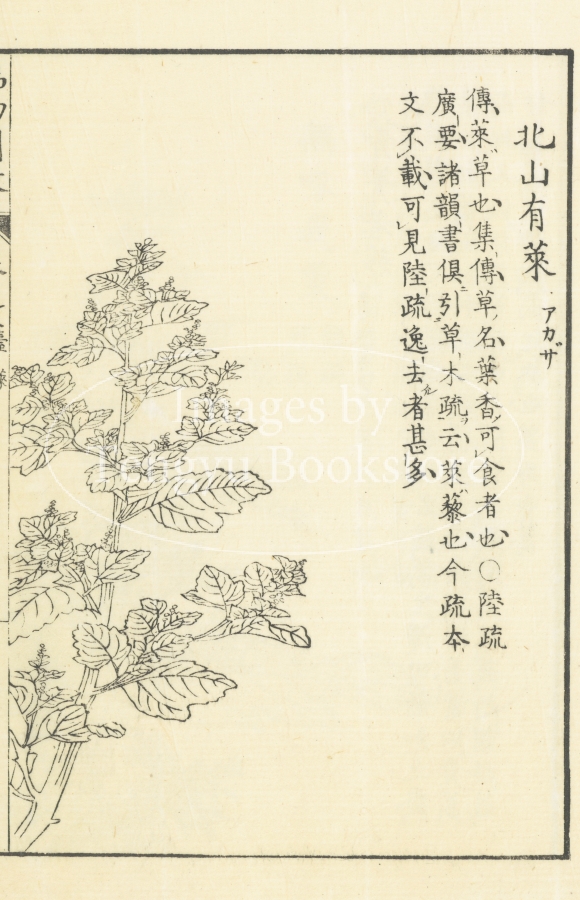 北山有萊
アカザ
傳萊草也集傳草名葉香可食者也○陸疏
廣要諸韻書俱引草木疏云萊藜也今疏本
文不載可見陸疏逸去者甚多
Images by
Tengyu Bookstore